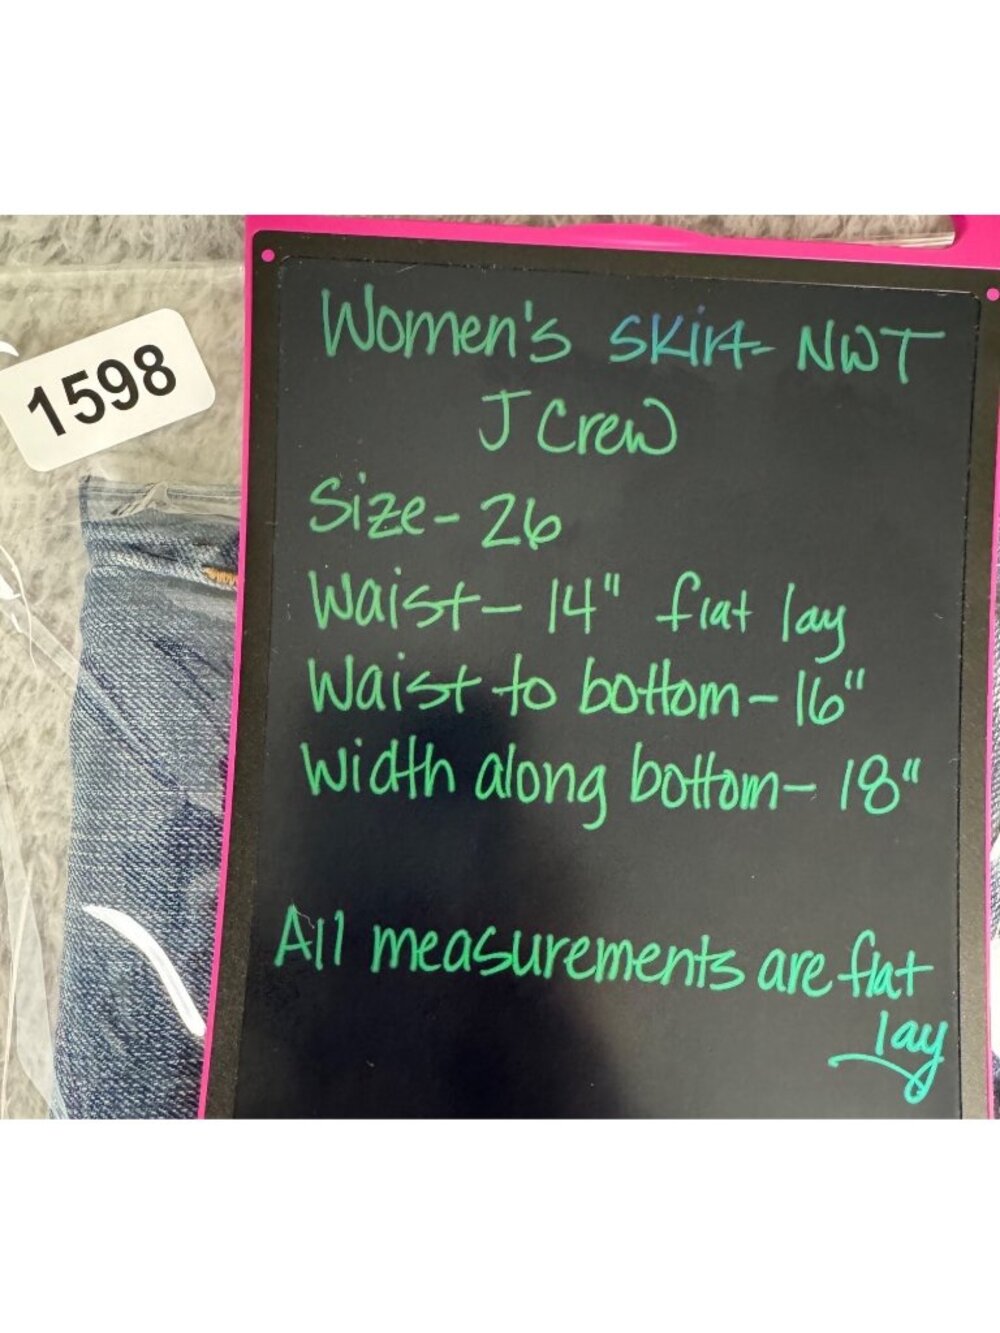 1598
Women's skirt- NWT
J Crew
Size- 26
Waist- 14" flat lay
Waist to bottom- 16"
Width along bottom- 18"
All measurements are flat
lay